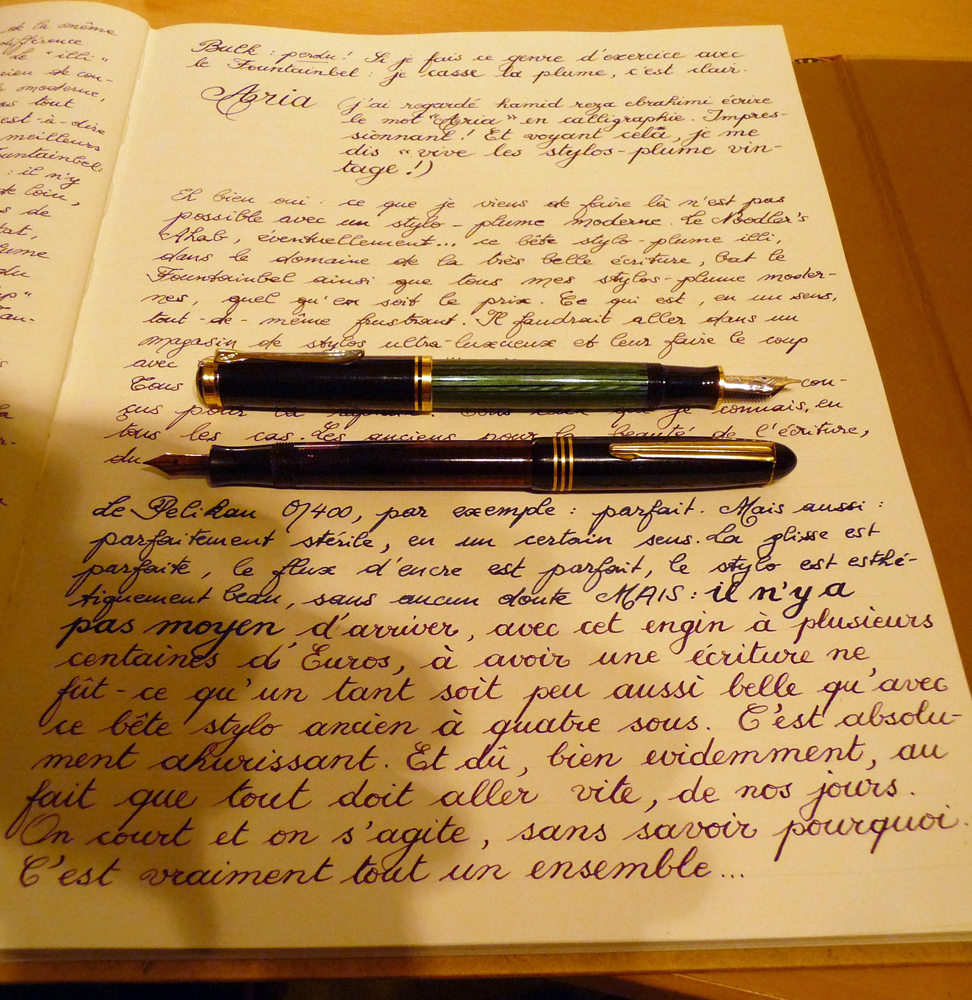 et la même
différence
le "illi"
cien et con-
s moderne,
ns tout
est-à-dire
meilleurs
Fountainbel:
: il n'y
de loin,
s de
tat,
plume
du
Bulk : perdu! Si je fais ce genre d'exercice avec
le Fountainbel : je casse la plume, c'est clair.
Aeria (j'ai regardé hamid reza ebrahimi écrire
le mot "Aeria" en calligraphie. Impres-
sionnant! Et voyant celà, je me
dis "vive les stylos-plume vin-
tage!)
Eh bien oui : ce que je viens de faire là n'est pas
possible avec un stylo-plume moderne. Le Noodler's
Ahab, éventuellement... ce bête stylo-plume illi,
dans le domaine de la très belle écriture, bat le
Fountainbel ainsi que tous mes stylos-plume moder-
nes, quel qu'en soit le prix. Ce qui est, en un sens,
tout-de-même frustrant. Il faudrait aller dans un
magasin de stylos ultra-luxueux et leur faire le coup
avec
Tous con-
çus pour la que je connais, en
tous les cas. Les anciens pour la beauté de l'écriture,
du
Le Pelikan 0/400, par exemple : parfait. Mais aussi :
parfaitement stérile, en un certain sens. La glisse est
parfaite, le flux d'encre est parfait, le stylo est esthé-
tiquement beau, sans aucun doute MAIS : il n'y a
pas moyen d'arriver, avec cet engin à plusieurs
centaines d'Euros, à avoir une écriture ne
fût-ce qu'un tant soit peu aussi belle qu'avec
ce bête stylo ancien à quatre sous. C'est absolu-
ment ahurissant. Et dû, bien evidemment, au
fait que tout doit aller vite, de nos jours.
On court et on s'agite, sans savoir pourquoi.
C'est vraiment tout un ensemble...